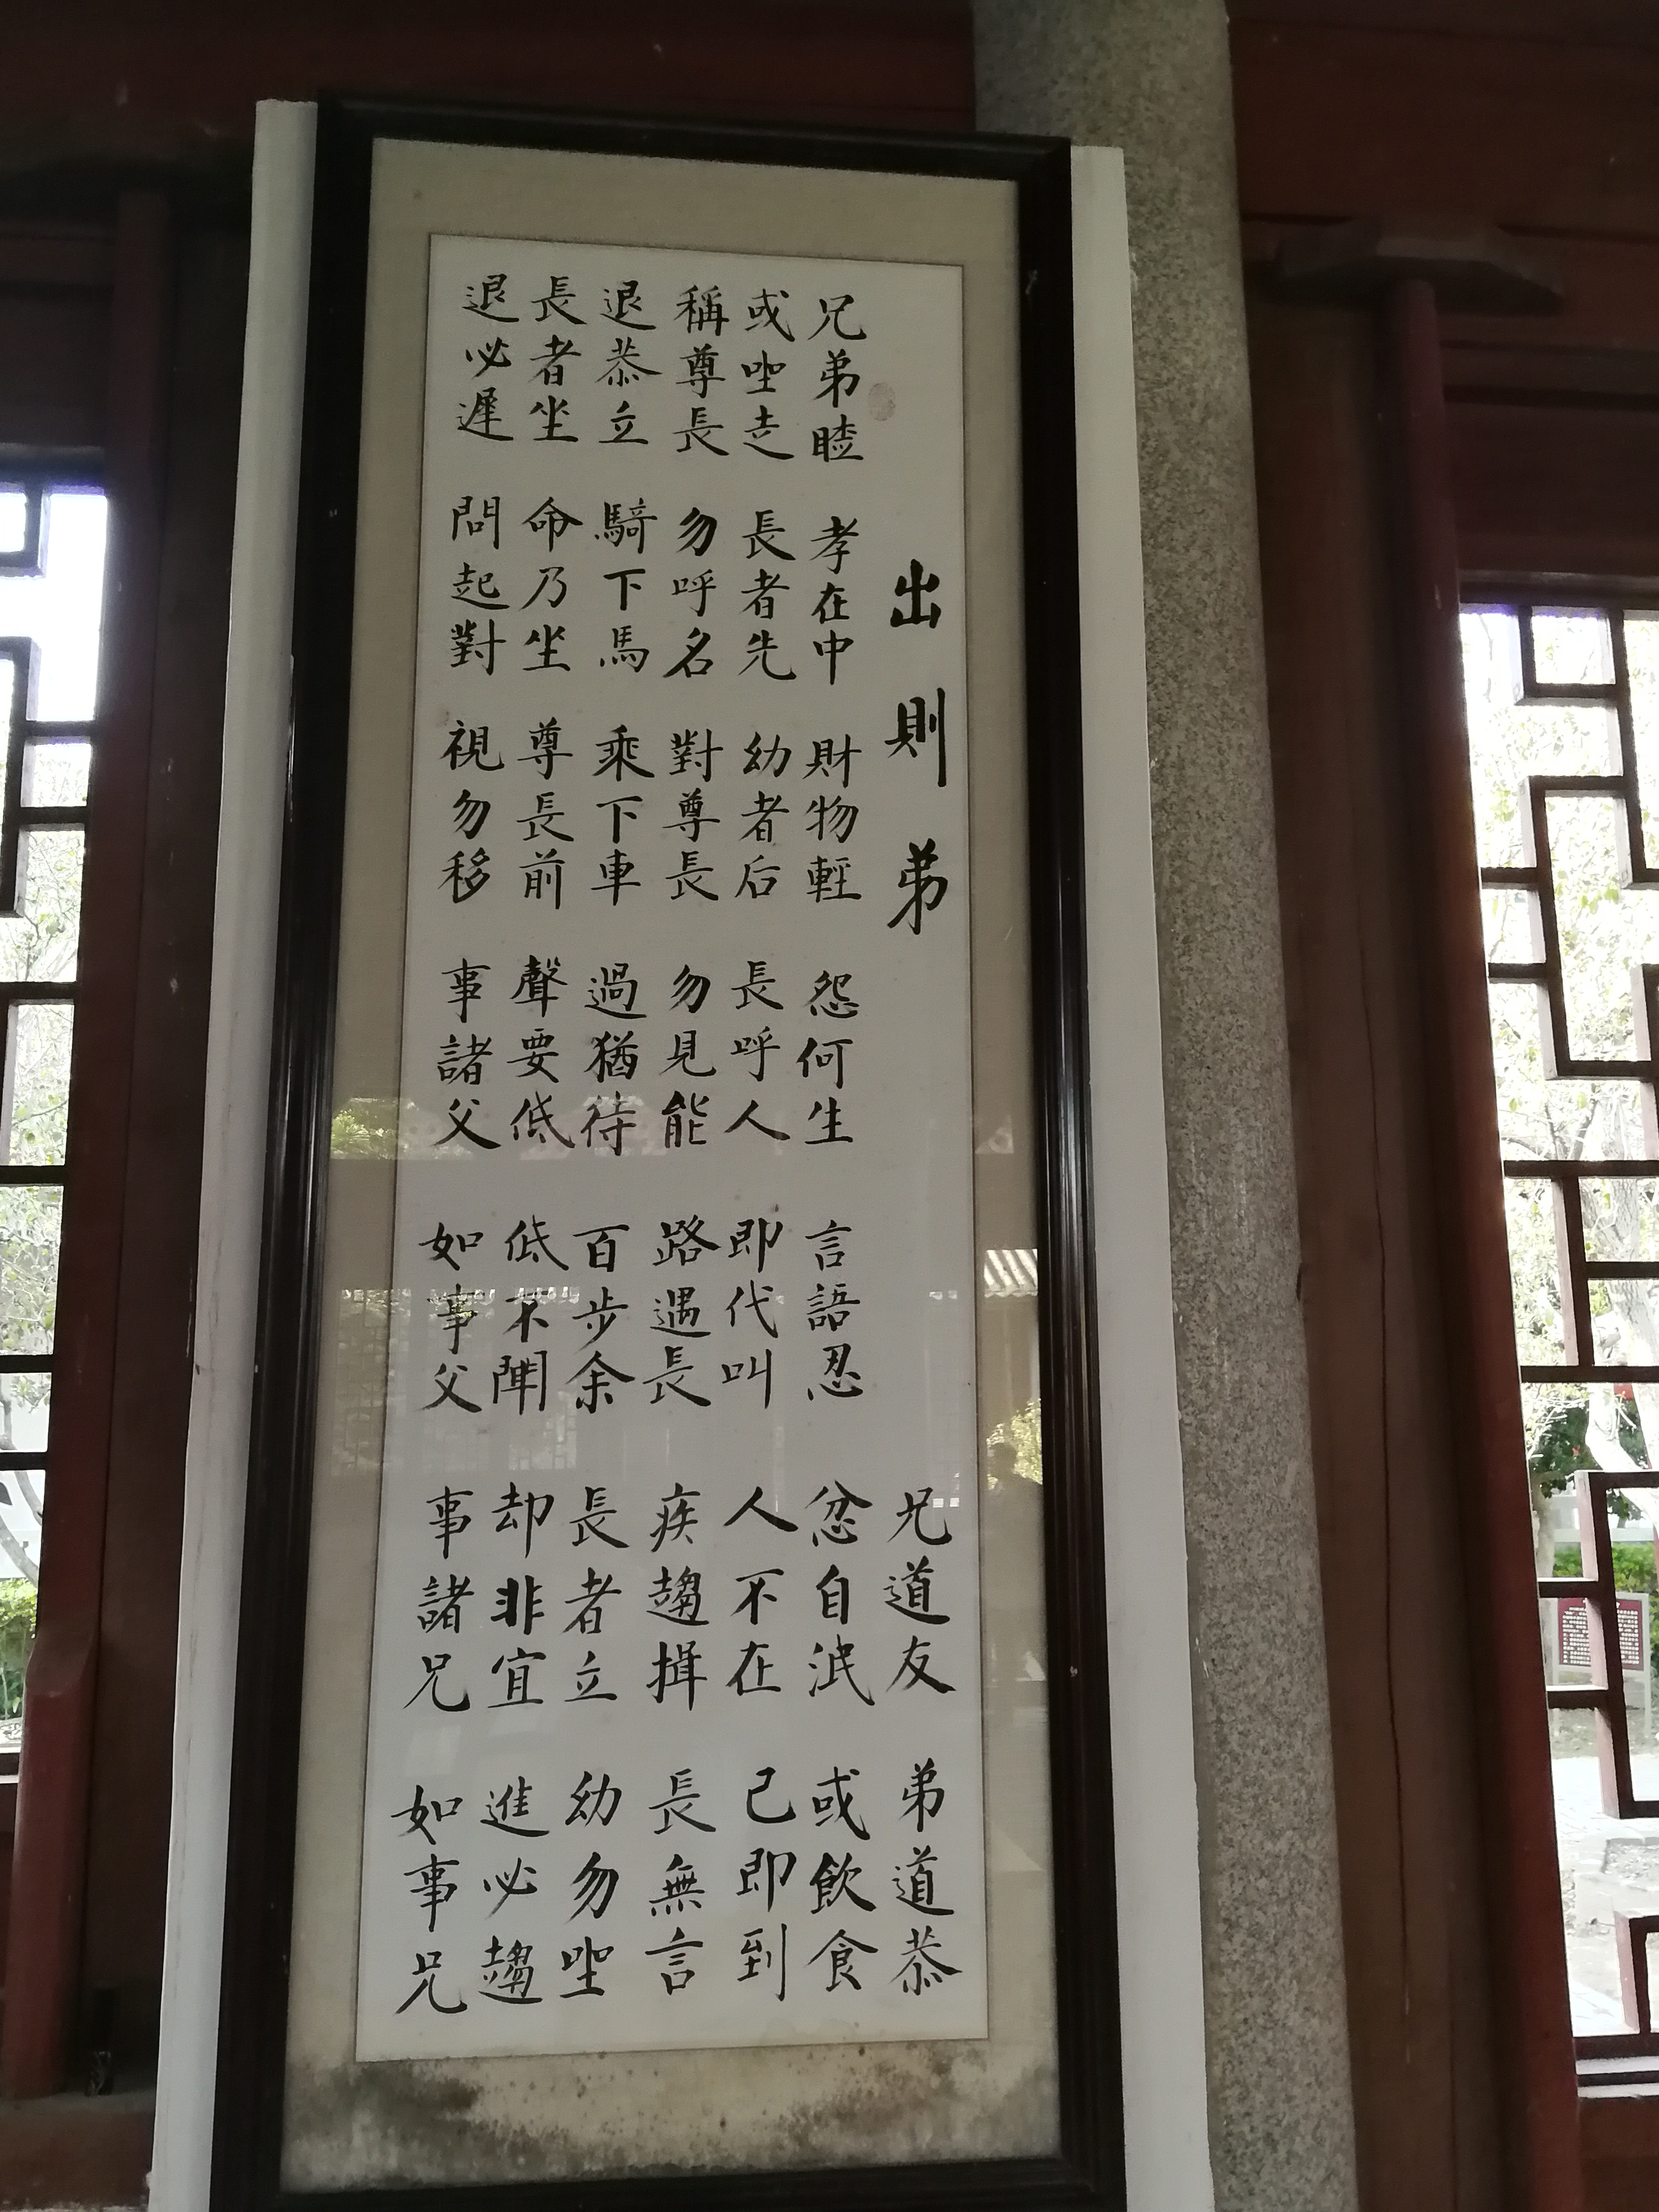 出則弟 兄道友 弟道恭
兄弟睦 孝在中 財物輕 怨何生 言語忍 忿自泯 或飲食
或坐走 長者先 幼者后 長呼人 即代叫 人不在 己即到
稱尊長 勿呼名 對尊長 勿見能 路遇長 疾趨揖 長無言
退恭立 騎下馬 乘下車 過猶待 百步余 長者立 幼勿坐
長者坐 命乃坐 尊長前 聲要低 低不聞 却非宜 進必趨
退必遲 問起對 視勿移 事諸父 如事父 事諸兄 如事兄